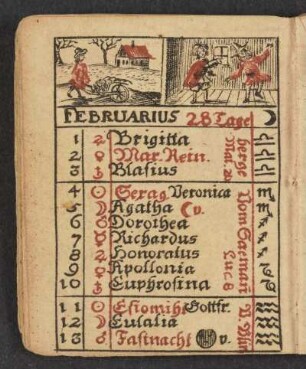 FEBRUARIUS 28 Tage
1 Brigitta
2 Mar. Rein.
3 Blasius
4 Sexag. Veronica
5 Agatha
6 Dorothea
7 Richardus
8 Honoratus
9 Apollonia
10 Euphrosina
11 Esiomihi Gottfr.
12 Eulalia
13 Fastnacht v.
berge
Mat. 20
Vom Saemañ
Luc. 8